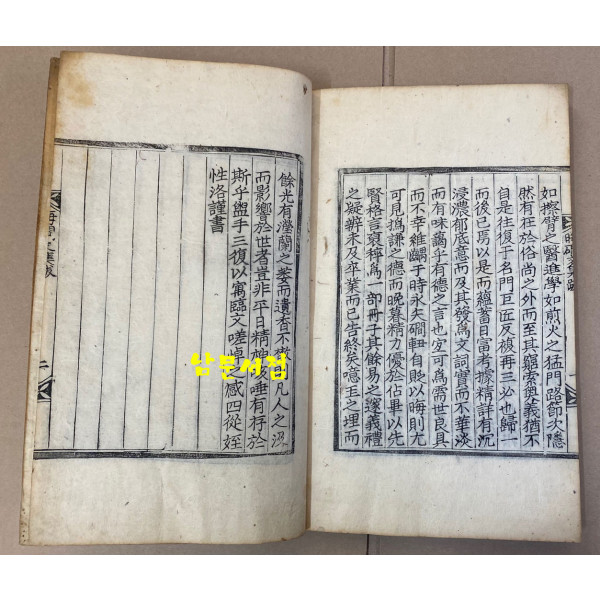 如擦背之醫進學如煎火之猛門路節次隱
然有在於俗尚之外而至其窮索奧義猶不
自是往復于名門巨匠反複再三必也歸一
而後已焉以是而蘊蓄日富考據精詳有沉
浸濃郁底意而及其發為文詞實而不華淡
而有味藹乎有德之言也宜可為需世良具
而不幸維齲于時永矢磵軒自貶以晦則尤
可見撝謙之德而晚暮精力優於佔畢以先
賢格言裒稡爲一部冊子其餘易之篷義禮
之疑辨未及卒業而已告終矣噫玉之埋而
餘光有瀅蘭之萎而遺香不 凡人之沼
而影響於世者豈非平日精神 唾有存於
斯乎盥手三復以寓臨文嗟 之感四從姪
性洛謹書
남문서점